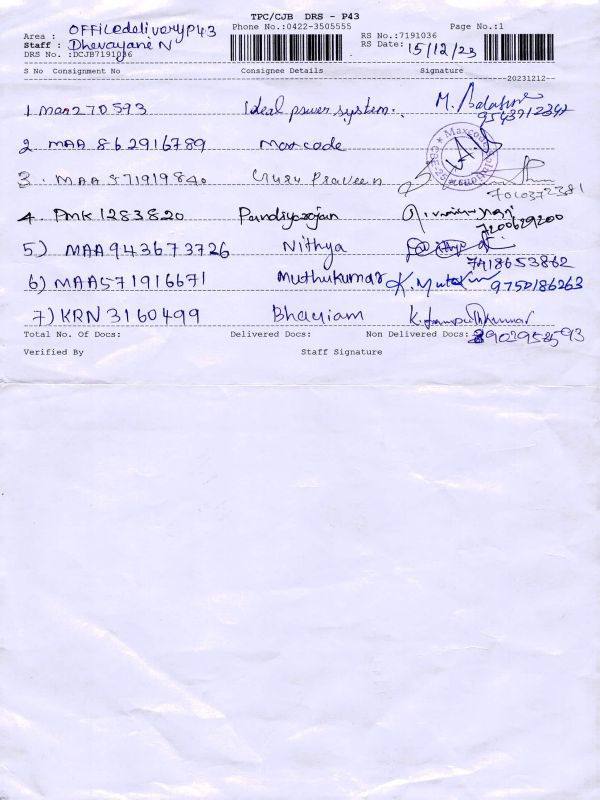 TPC/CJB DRS - P43
Area : OFFicedeliveryP43 Phone No.:0422-3505555 RS No.:7191036 Page No.:1
Staff : Dhevayane N RS Date: 15/12/23
DRS No. :DCJB7191036
S No Consignment No Consignee Details Signature
20231212
1 maa270593 Ideal power system. M.
9543912342
2 MAA 862916789 Maxcode
3. MAA 571919840 Guru Praveen
7010372381
4. PMK 1283820 Pandiyarajan
7200629200
5) MAA943673726 Nithya
7418653862
6) MAA571916671 Muthukumar K. 9750186263
7) KRN 3160499 Bhayiam K.
Total No. Of Docs: Delivered Docs: Non Delivered Docs:
Verified By Staff Signature